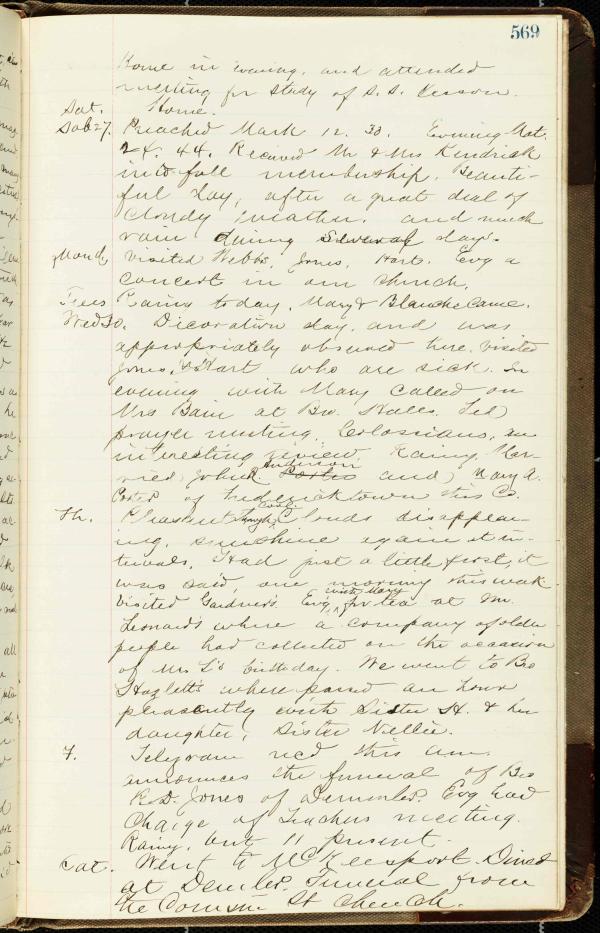 569
home in evening, and attended
meeting for study of S. S. Lesson.
Sat. Home.
Sab 27. Preached Mark 12. 30. Evening Mat.
24. 44. Received Mr & Mrs Kendrick
into full membership. Beauti-
ful day, after a great deal of
cloudy weather, and much
rain during several days.
Mond. Visited Webbs, Jones, Hart. Evg a
concert in our church.
Tues Rainy today. Mary & Blanche came.
Wed 30. Decoration day, and was
appropriately observed here. Visited
Jones, & Hart who are sick. In
evening with Mary called on
Mrs Bain at Bro. Halls. Led
prayer meeting, Colossians, an
interesting review. Rainy. Mar-
ried John R. Anderson and Mary A.
Porter of Fredericktown this Co.
Th. Pleasant though cool. Clouds disappear-
ing, sunshine again at in-
tervals. Had just a little frost, it
was said, one morning this week.
Visited Gardners. Evg, with Mary for tea at Mr.
Leonards where a company of older
people had collected on the occasion
of Mrs L's birthday. We went to Bro
Hazletts where passed an hour
pleasantly with Sister H. & her
daughter, Sister Nellie.
F. Telegram rec'd this am.
announces the funeral of Bro
R. D. Jones of Demmler. Evg had
charge of Teachers meeting.
Rainy, but 11 present.
Sat. Went to McKeesport. Dined
at Demler. Funeral from
the St Church.